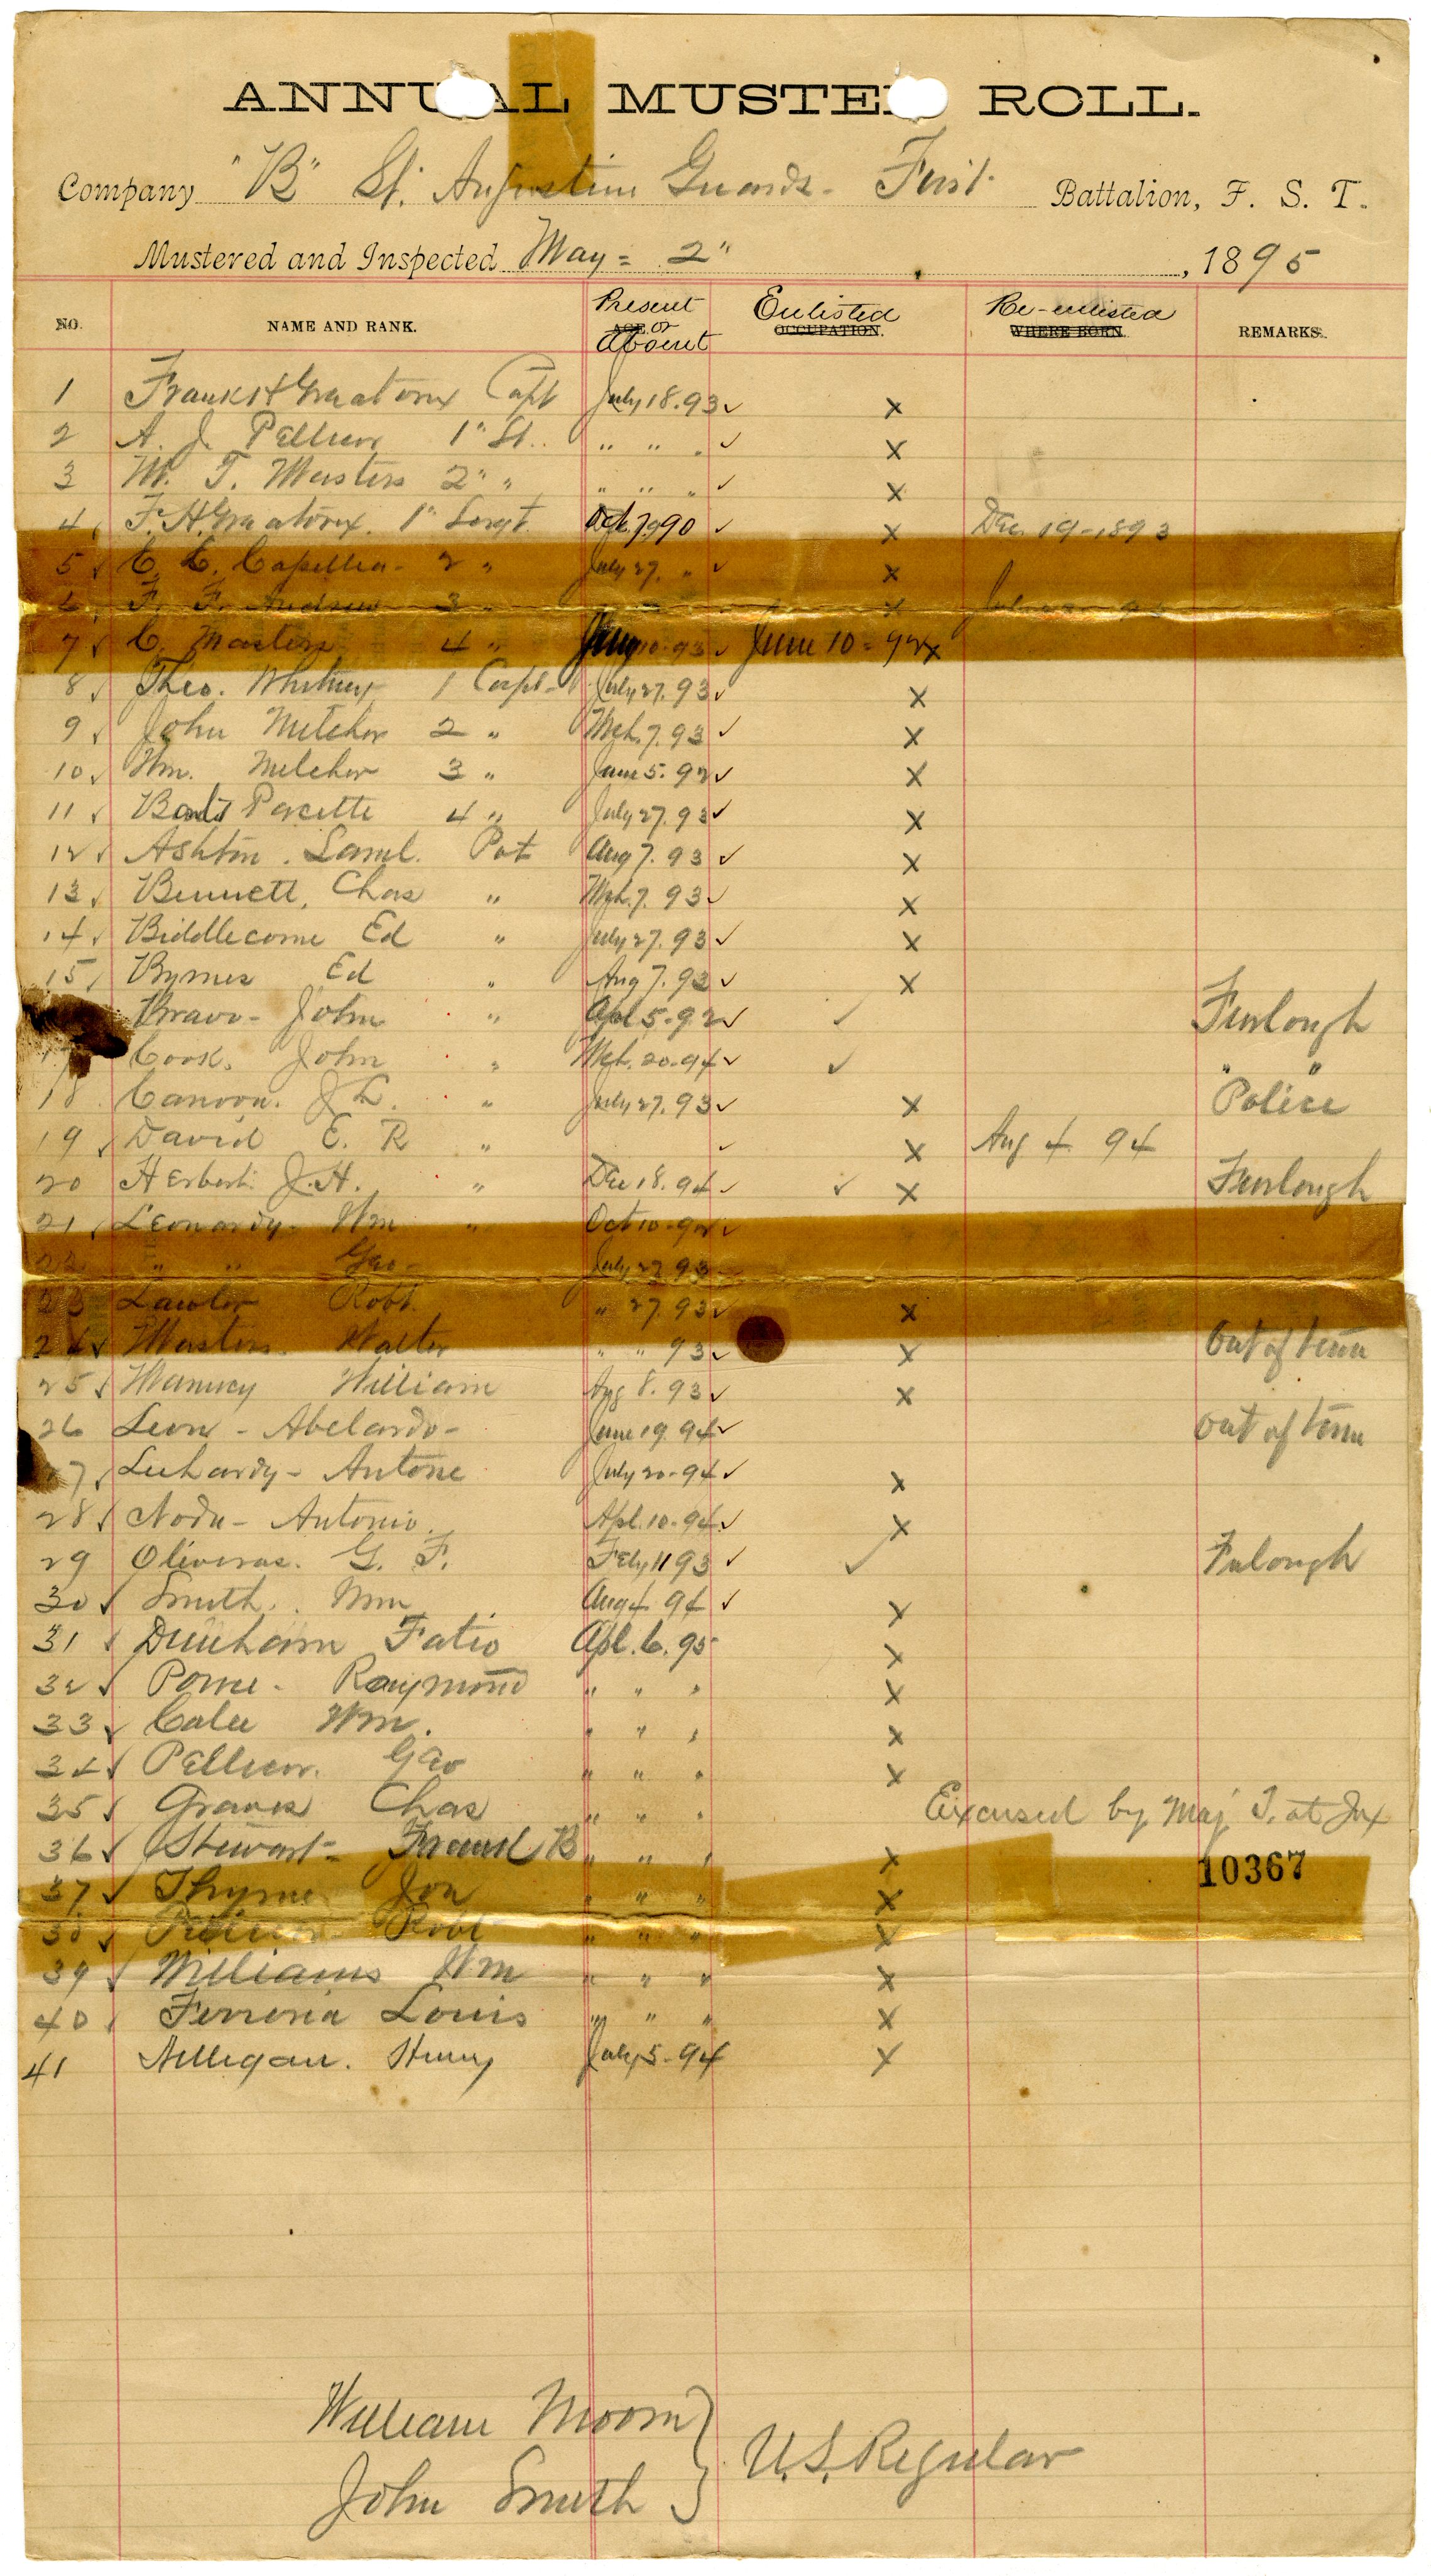 ANNUAL MUSTER ROLL.
Company "B" St. Augustine Guards - First Battalion, F. S. T.
Mustered and Inspected May = 2" , 1895
NO. NAME AND RANK. Present AGE. or Absent Enlisted OCCUPATION. Re-enlisted WHERE BORN. REMARKS.
1 Frank H Greatorex Capt July 18. 93 ✓ x
2 A. J. Pellicer 1" Lt. " " " ✓ x
3 M. T. Masters 2" " " " " ✓ x
4 F. H. Greatorex. 1" Sergt. 7, 90 ✓ x Dec. 19 - 1893
5 ✓ C. C. Capellia - 2 " July 27, " ✓ x
6 F. F. Andreu 3 " x
7 ✓ C. Masters 4 " 10 - 93 ✓ June 10 = 92 x
8 ✓ Theo. Whitney 1 Corpl - July 27. 93 ✓ x
9 ✓ John Melcher 2 " Mch. 7. 93 ✓ x
10 ✓ Wm. Melcher 3 " June 5. 92 ✓ x
11 ✓ Pacette 4 " July 27. 93 ✓ x
12 ✓ Ashton. Saml. Pvt Aug 7. 93 ✓ x
13 ✓ Bennett, Chas " Mch. 7. 93 ✓ x
14 ✓ Biddlecome Ed " July 27. 93 ✓ x
15 ✓ Byrnes Ed " Aug 7. 93 ✓ x
Bravo - John " Apl 5 - 92 ✓ ✓ Furlough
17 Cook. John " Mch. 20 - 94 ✓ ✓ " "
18 Canova. J. L. " July 27. 93 ✓ x Police
19 ✓ David E. R " ✓ x Aug 4 94
20 Herbert. J. H. " Dec 18. 94 ✓ ✓ x Furlough
21 ✓ Leonardy - Wm " Oct 10 - 92 ✓
22 " " Geo - July 27 93
23 Lawler Robt. " 27. 93 ✓ x
24 ✓ Masters. Walter " " 93 ✓ x Out of town
25 ✓ Manucy William Aug 8. 93 ✓ x
26 Leon - Abelardo - June 19. 94 ✓ Out of town
27 ✓ Antone July 20 - 94 ✓ x
28 ✓ Noda - Antonio. Apl. 10 - 94 ✓ x
29 Oliveros. G. F. Feby 11 93 ✓ ✓ Fulough
30 ✓ Smith. Wm Aug 4 94 ✓ x
31 ✓ Dunham Fatio Apl. 6. 95 x
32 ✓ Pome - Raymond " " " x
33 ✓ Colee Wm. " " " x
34 ✓ Pellicer. Geo " " " x
35 ✓ Graves Chas " " " Excused by Maj T. at Jax
36 ✓ Stewart - B " " " x
10367
37 ✓ " " " x
38 ✓ Robt " " " x
39 ✓ Williams Wm " " " x
40 ✓ Ferreria Louis " " " x
41 Milligan. Henry July 5 - 94 x
William Moorn
John Smith } U.S. Regular